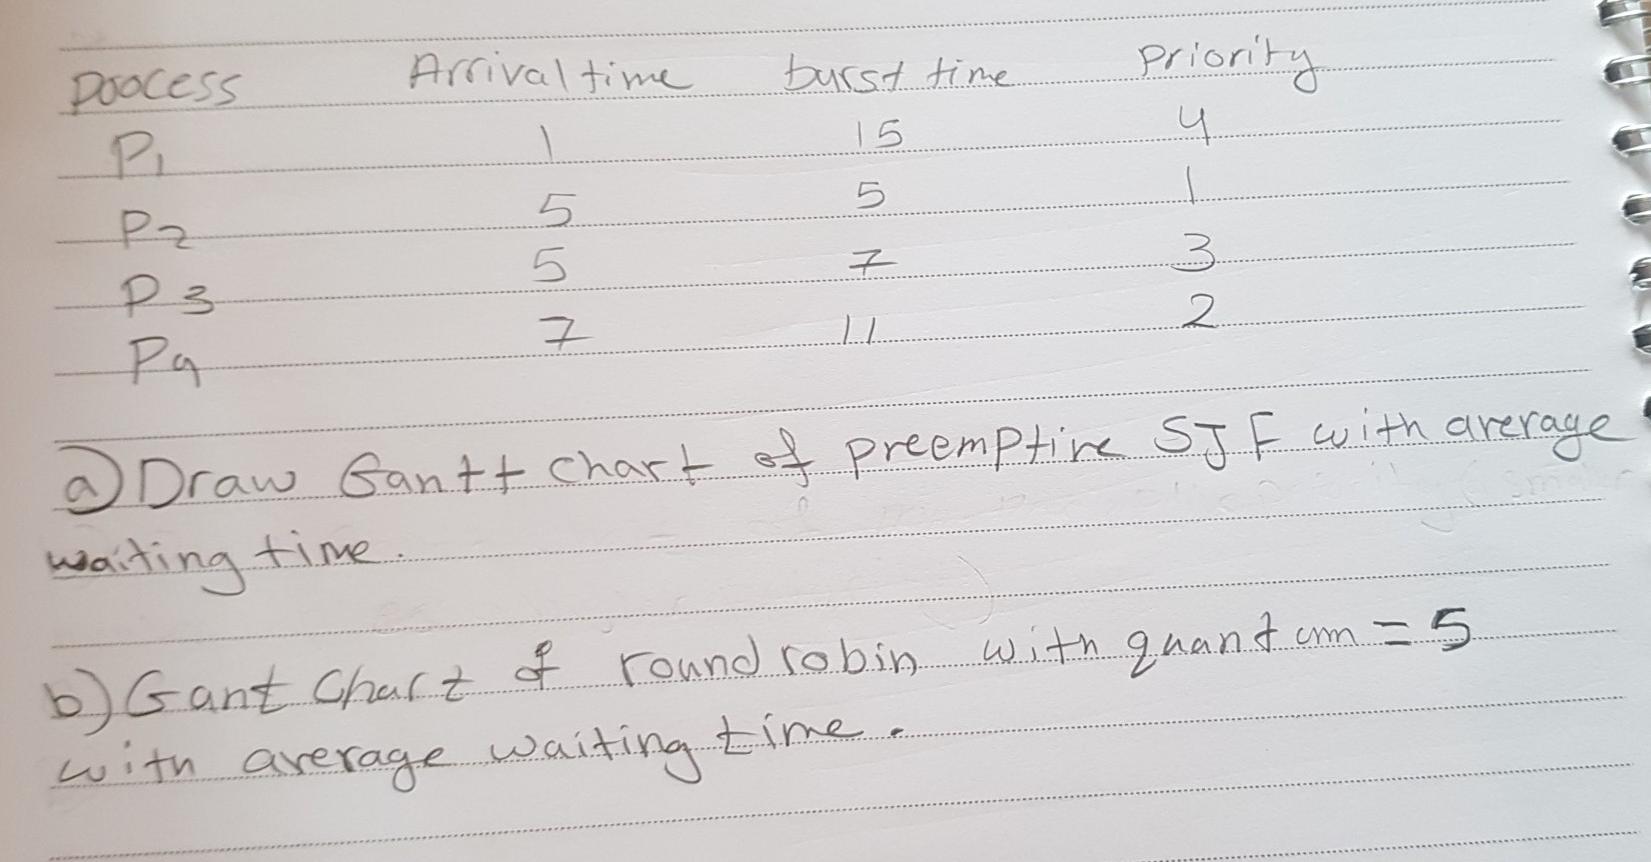 Process Arrival time burst time Priority
P1 1 15 4
P2 5 5 1
P3 5 7 3
P4 7 11 2
a) Draw Gantt chart of preemptive SJF with average
waiting time.
b) Gant Chart of round robin with quantum = 5
with average waiting time.